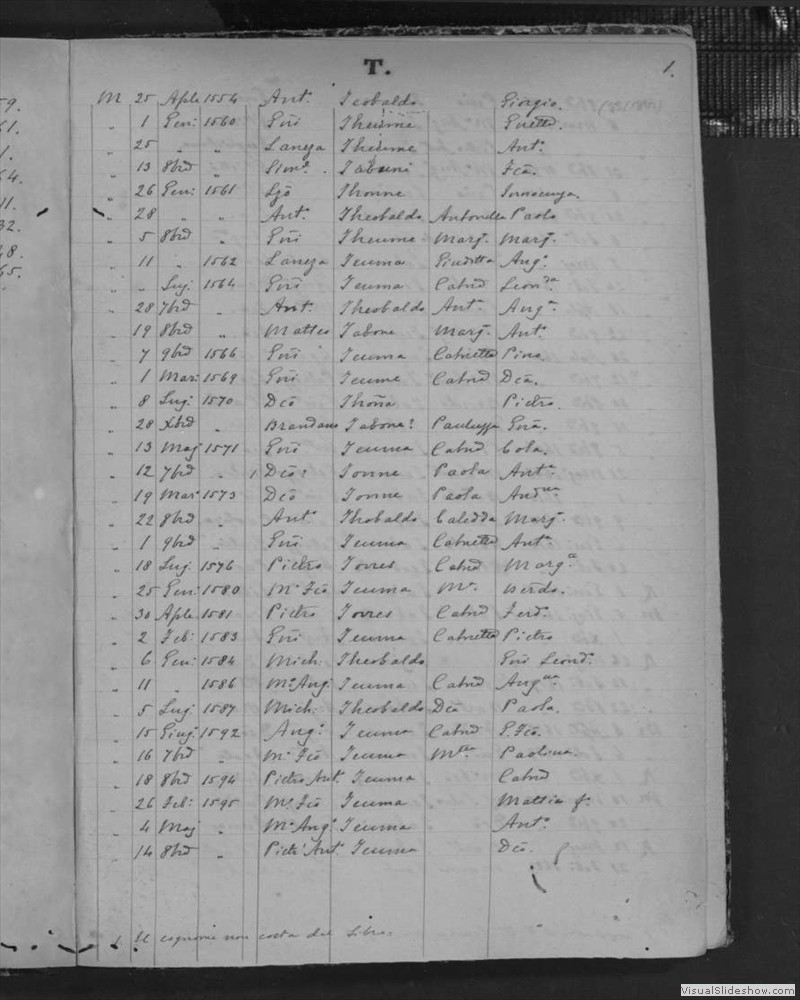 T.
1.
M 25 Aple 1554 Ant. Teobaldo Giorgio.
" 1 Gen: 1560 Gnō Theume
" 25 " " Lanza Theume Ant.
" 13 8brē " Sim.
" 26 Gen: 1561 Thonne Innocenza.
" 28 " " Ant. Theobaldo Antonella Paolo
" 5 8brē " Gnō Theume Marj. Marj.
" 11 " 1562 Lanza Teuma Giuditta Ang.
" " Lug. 1564 Gnō Teuma Cabrē Leond.
" 28 7brē " Ant. Theobaldo Ant. Ang.
" 19 8brē " Matteo Tabone Marj. Ant.
" 7 9brē 1566 Gnō Teuma Cabretta Pina.
" 1 Mar: 1569 Gnō Teume Cabrē Dca.
" 8 Lug. 1570 Dcō Thoña Pietro.
" 28 Xbrē " Brandano Tabone: Pauluzza Gnā.
" 13 Maj 1571 Gnō Teuma Cabrē Cola.
" 12 7brē " 1 Dcō: Tonne Paola Ant.
" 19 Mar 1573 Dcō Tonne Paola And.
" 22 8brē " Ant. Theobaldo Caledda Marj.
" 1 9brē " Gnō Teuma Cabretta Ant.
" 18 Lug. 1576 Pietro Torres Cabrē Marg.
" 25 Gen: 1580 M. Fcō Teuma M.
" 30 Aple 1581 Pietro Torres Cabrē Ferd.
" 2 Feb: 1583 Gnō Teuma Cabretta Pietro
" 6 Gen: 1584 Mich: Theobaldo Gnō Leond.
" 11 " 1586 M. Ang. Teuma Cabrē Ang.
" 5 Lug. 1587 Mich: Theobaldo Dca Paola.
" 15 Giug. 1592 Ang. Teuma Cabrē G. Fcō.
" 16 7brē " M. Fcō Teuma M. Paolina.
" 18 8brē 1594 Pietro Ant. Teuma Cabrē
" 26 Feb: 1595 M. Fcō Teuma Mattia f.
" 4 Maj " M. Ang. Teuma Ant.
" 14 8brē " Piet. Ant. Teuma Dcō.
1 Il cognome non costa dal Libro.
VisualSlideshow.com